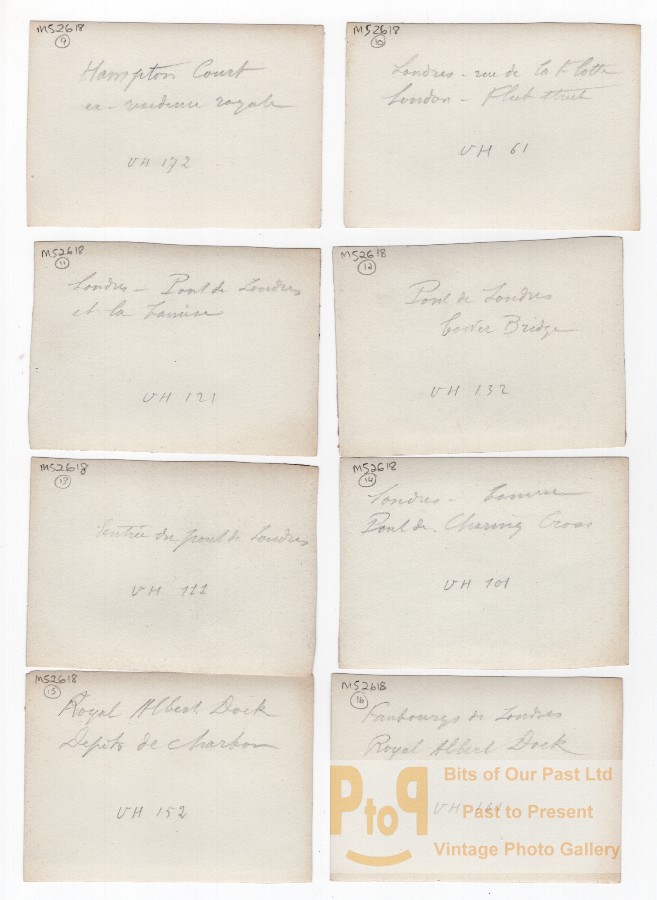 M52618
9
Hampton Court
ex-residence royale
VH 172
M52618
10
Londres - rue de la Flotte
London - Fleet street
VH 61
M52618
11
Londres - Pont de Londres
et la Tamise
VH 121
M52618
12
Pont de Londres
Tower Bridge
VH 132
M52618
13
Entrée du pont de Londres
VH 111
M52618
14
Londres - Tamise
Pont de Charing Cross
VH 101
M52618
15
Royal Albert Dock
Depôts de charbon
VH 152
M52618
16
Faubourgs de Londres
Royal Albert Dock
VH
PtoP
Bits of Our Past Ltd
Past to Present
Vintage Photo Gallery